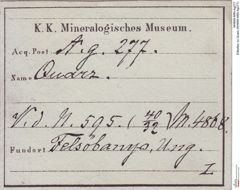 K. K. Mineralogisches Museum.
Acq. Post A. g. 277.
Name Quarz.
V. d. N. 595. (40/92) M. 4868.
Fundort Felsőbanya, Ung.
I